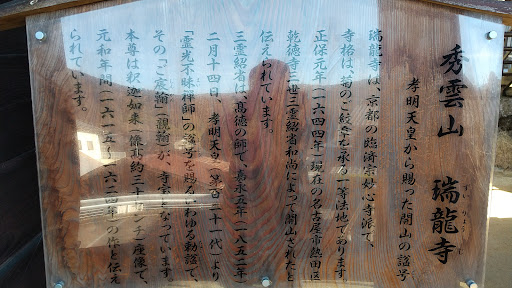 秀雲山 瑞龍寺
ずいりょうじ
孝明天皇から賜った開山の諡号
瑞龍寺は、京都の臨済宗妙心寺派で、
寺格は、菊のご紋章を承る一等法地であります。
正保元年(一六四四年)現在の名古屋市熱田区
乾徳寺三世三霊紹省和尚によって開山されたと
伝えられています。
三霊紹省は、高徳の師で、嘉永五年(一八五二年)
二月十四日、孝明天皇(第百二十一代)より
「霊光不昧禅師」の諡号を賜るいわゆる勅諡で、
その「ご宸翰」(親翰)が、寺宝となっています。
本尊は釈迦如来(像高約三十センチ)座像で、
元和年間(一六一五年~一六二四年)の作と伝え
られています。